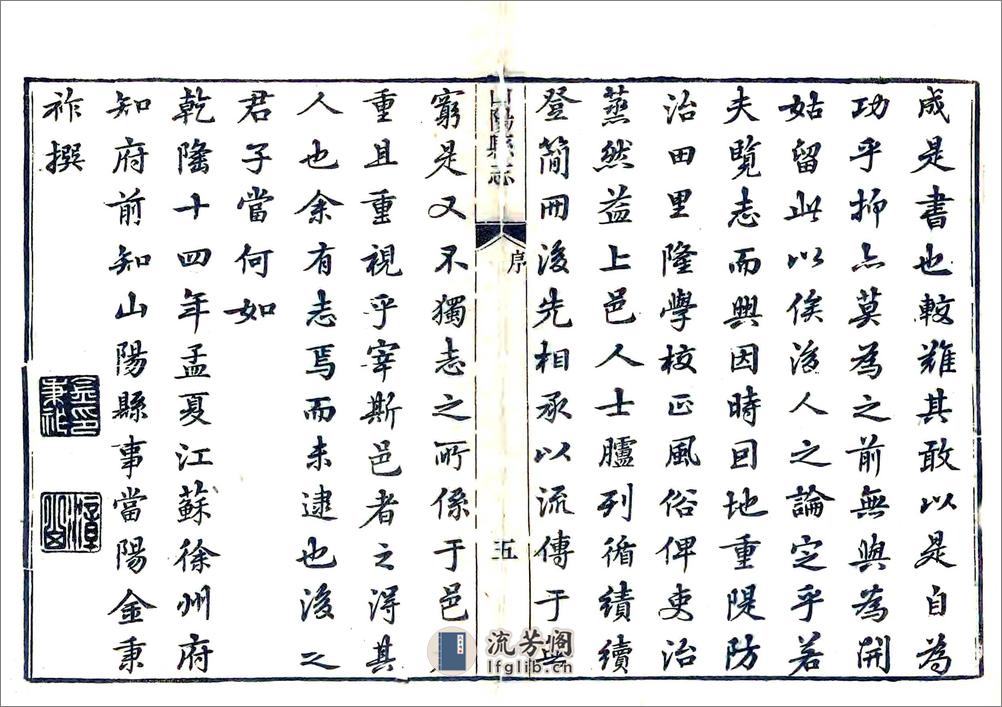 成是書也較難其敢以是自為
功乎抑亦莫為之前無與為開
姑留此以俟後人之論定乎若
夫覽志而興因時因地重隄防
治田里隆學校正風俗俾吏治
蒸然益上邑人士臚列循績續
登簡冊後先相承以流傳于無
山陽縣志
序
五
窮是又不獨志之所係于邑
重且重視乎宰斯邑者之得其
人也余有志焉而未逮也後之
君子當何如
乾隆十四年孟夏江蘇徐州府
知府前知山陽縣事當陽金秉
祚撰
金印秉祚
流芳阁
lfglib.cn